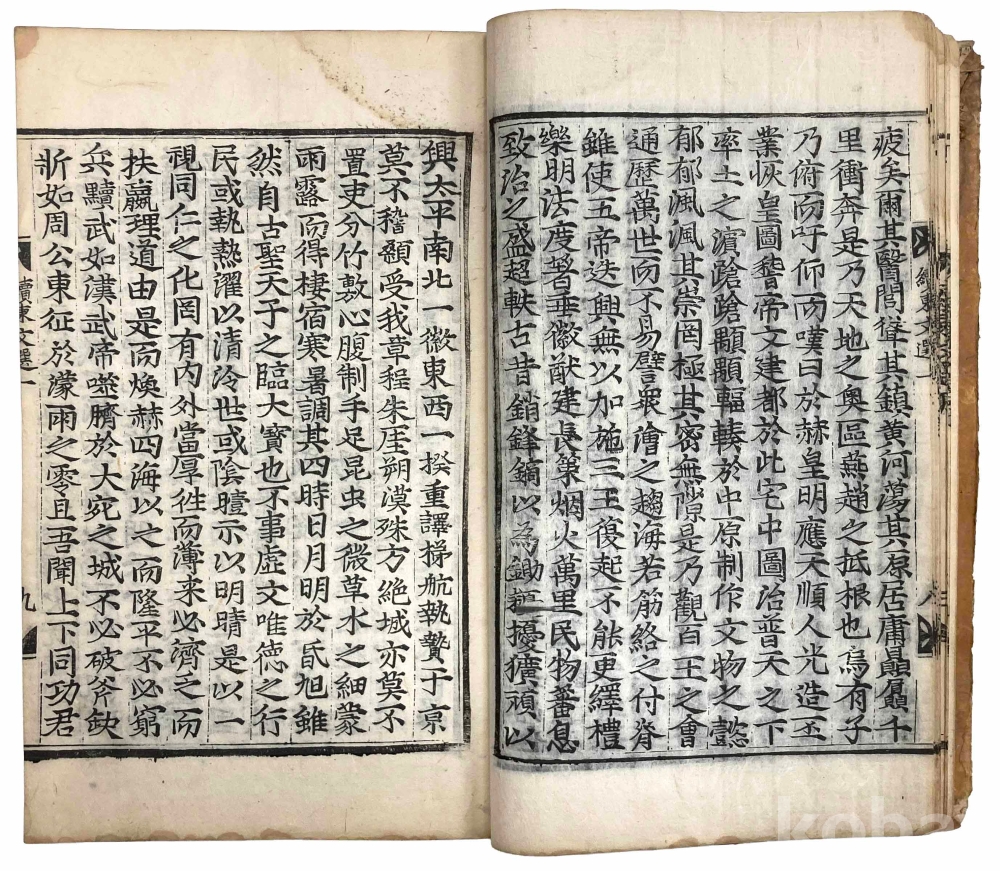 疲矣爾其醫閭聳其鎮黃河蕩其原居庸贔屭千
里衝奔是乃天地之奧區燕趙之抵根也烏有子
乃俯而吁仰而嘆曰於赫皇明應天順人光造丕
業恢皇圖瞀帝文建都於此宅中圖治普天之下
率土之濵蹌蹌顒顒輻輳於中原制作文物之懿
郁郁渢渢其崇罔極其密無隙是乃觀百王之會
通歷萬世而不易譬衆澮之趨海若筋絡之付脊
雖使五帝迭興無以加施三王復起不能更繹禮
樂明法度著垂徽猷建長策烟火萬里民物蕃息
致治之盛超軼古昔銷鋒鏑以為鋤擾獷頑以
興太平南北一徽東西一揆重譯梯航執贄于京
莫不稽顙受我草程朱厓朔漠殊方絶域亦莫不
置吏分竹敷心腹制手足昆虫之微草木之細蒙
雨露而得棲宿寒暑調其四時日月明於昏旭雖
然自古聖天子之臨大寶也不事虛文唯徳之行
民或執熱濯以清泠世或陰曀示以明晴是以一
視同仁之化罔有内外當厚徃而薄来必濟乏而
扶羸理道由是而煥赫四海以之而隆平不必窮
兵黷武如漢武帝噬臍於大宛之城不必破斧缺
斨如周公東征於濛雨之零且吾聞上下同功君
續東文選一
九